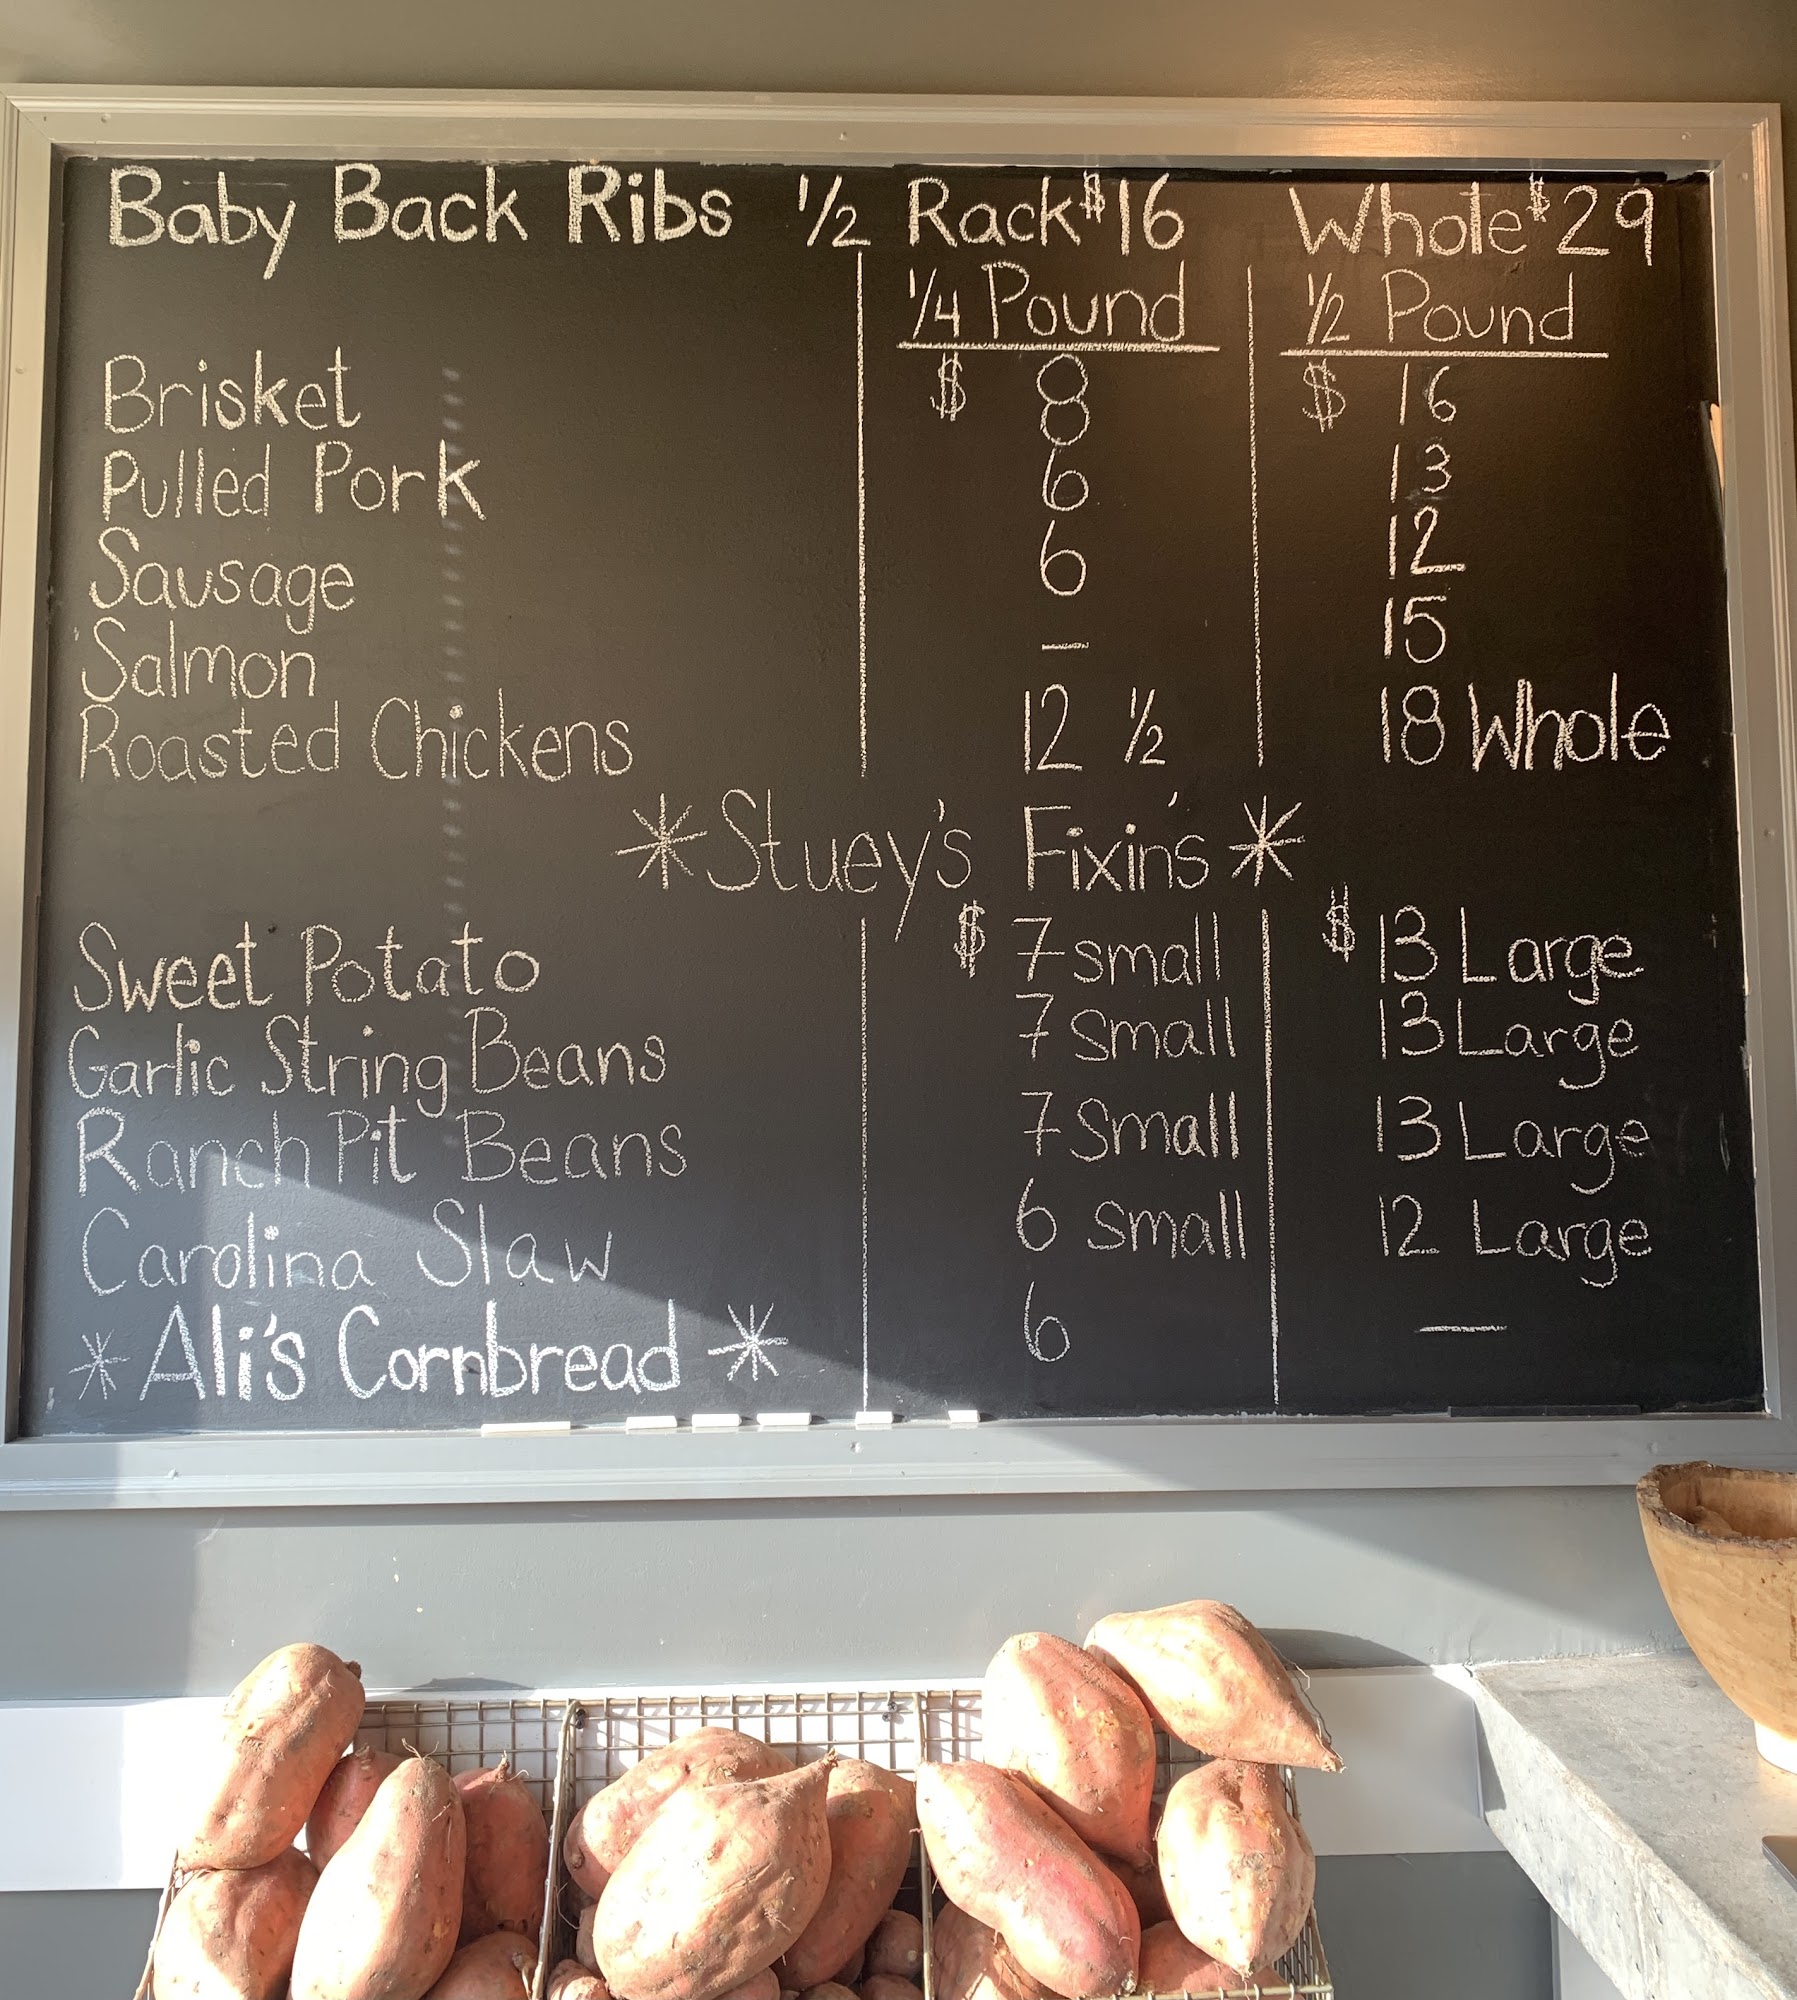 Baby Back Ribs ½ Rack $16 Whole $29
¼ Pound ½ Pound
Brisket $ 8 $ 16
Pulled Pork 6 13
Sausage 6 12
Salmon – 15
Roasted Chickens 12 ½ 18 Whole
*Stuey's Fixin's*
Sweet Potato $ 7 small $ 13 Large
Garlic String Beans 7 small 13 Large
Ranch Pit Beans 7 small 13 Large
Carolina Slaw 6 small 12 Large
*Ali's Cornbread* 6 –